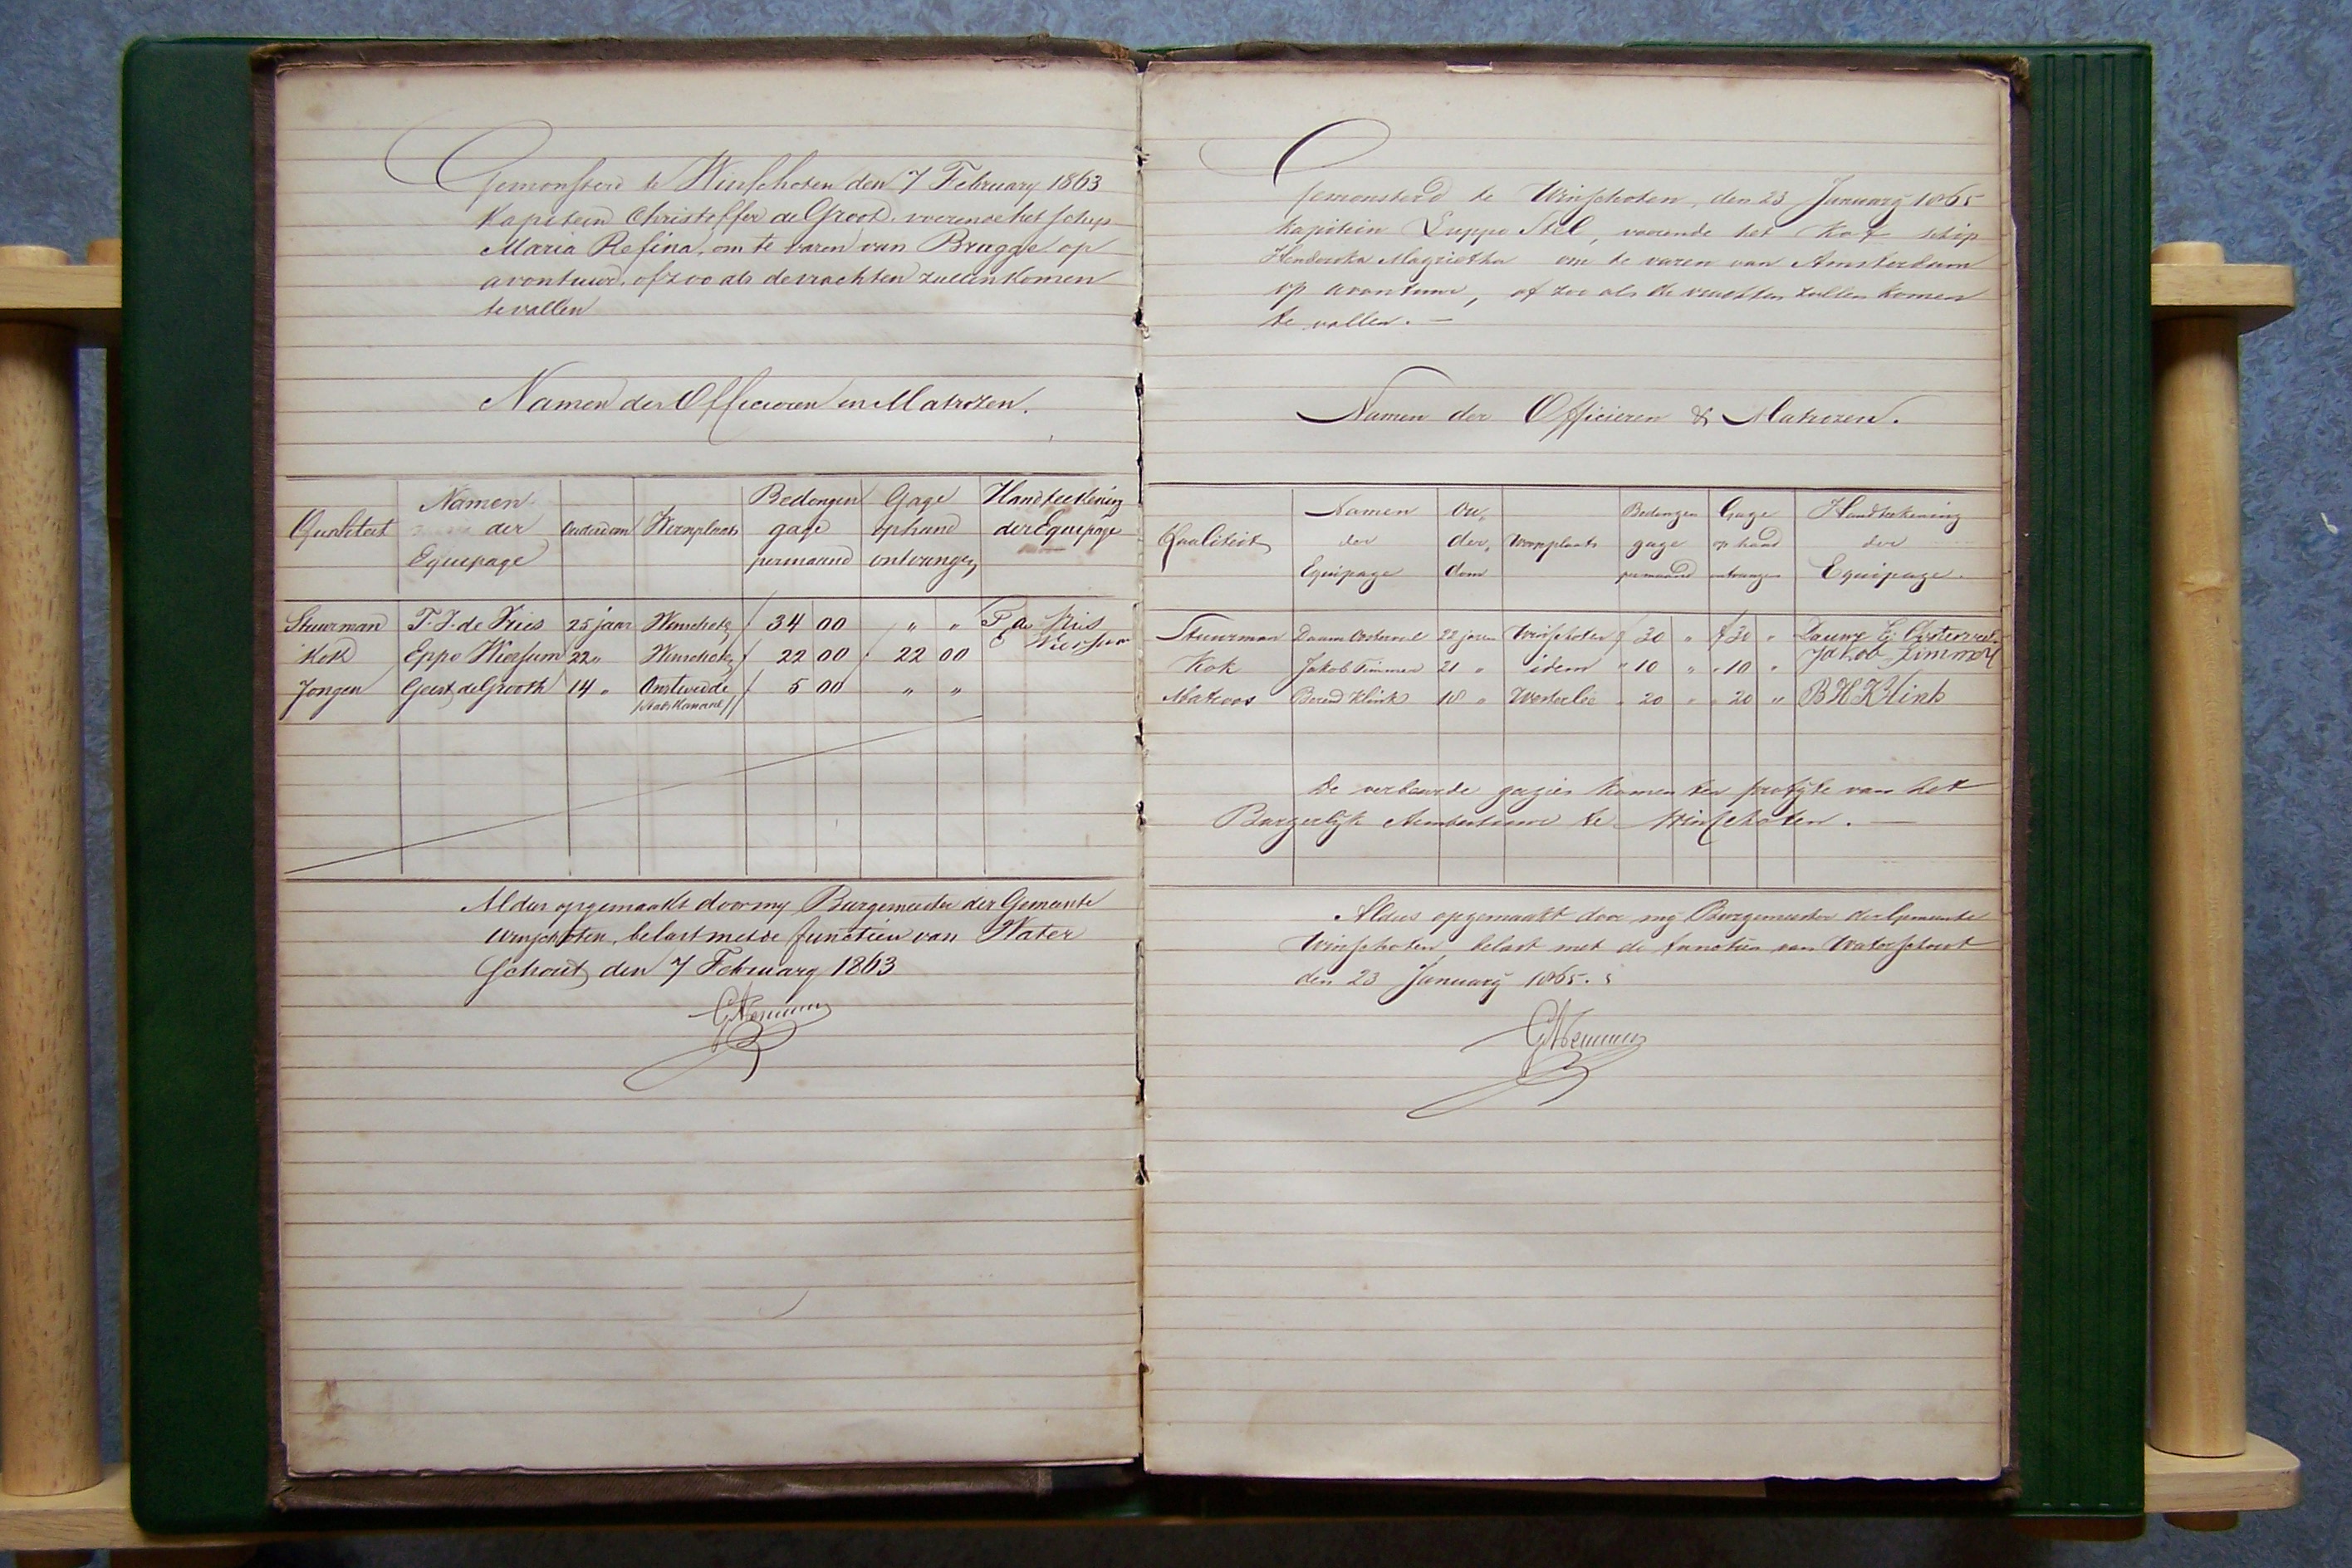 Gemonsterd te Winschoten den 7 February 1863
Kapitein Christoffer de Groot. voerende het schip
Maria Refina, om te varen van Brugge op
avontuur, of zoo als de vrachten zullen komen
te vallen
Namen der Officieren en Matrozen.
Qualiteit Namen der Equipage Ouderdom Woonplaats Bedongen gage per maand Gage op hand ontvangen Handteekening der Equipage
Stuurman T. J. de Vries 25 jaar Winschoten f 34 00 " " T de Vries
Kok Eppo Wiersum 22 " Winschoten f 22 00 f 22 00 E Wiersum
Jongen Geert de Grooth 14 " Onstwedde f 5 00 " "
/Stads Kanaal/
Aldus opgemaakt door my Burgemeester der Gemeente
Winschoten, belast met de functien van Water
schout, den 7 February 1863
Gemonsterd te Winschoten, den 23 January 1865
Kapitein Luppo Stel, voerende het Kof schip
Henderika Magrietha om te varen van Amsterdam
op avontuur, of zoo als de vrachten zullen komen
te vallen. —
Namen der Officieren & Matrozen.
Qualiteit Namen der Equipage Ou- der- dom Woonplaats Bedongen gage per maand Gage op hand ontvangen Handteekening der Equipage.
Stuurman 22 jaren Winschoten f 30 " f 30 "
Kok Jakob Timmer 21 " idem " 10 " " 10 " Jakob Timmer
Matroos Berend Klink 18 " Westerlee " 20 " " 20 " B H Klink
De verbeurde gagien komen ten profijte van het
Burgerlijk Armbestuur te Winschoten. —
Aldus opgemaakt door mij Burgemeester der Gemeente
Winschoten, belast met de functien van Waterschout
den 23 January 1865.